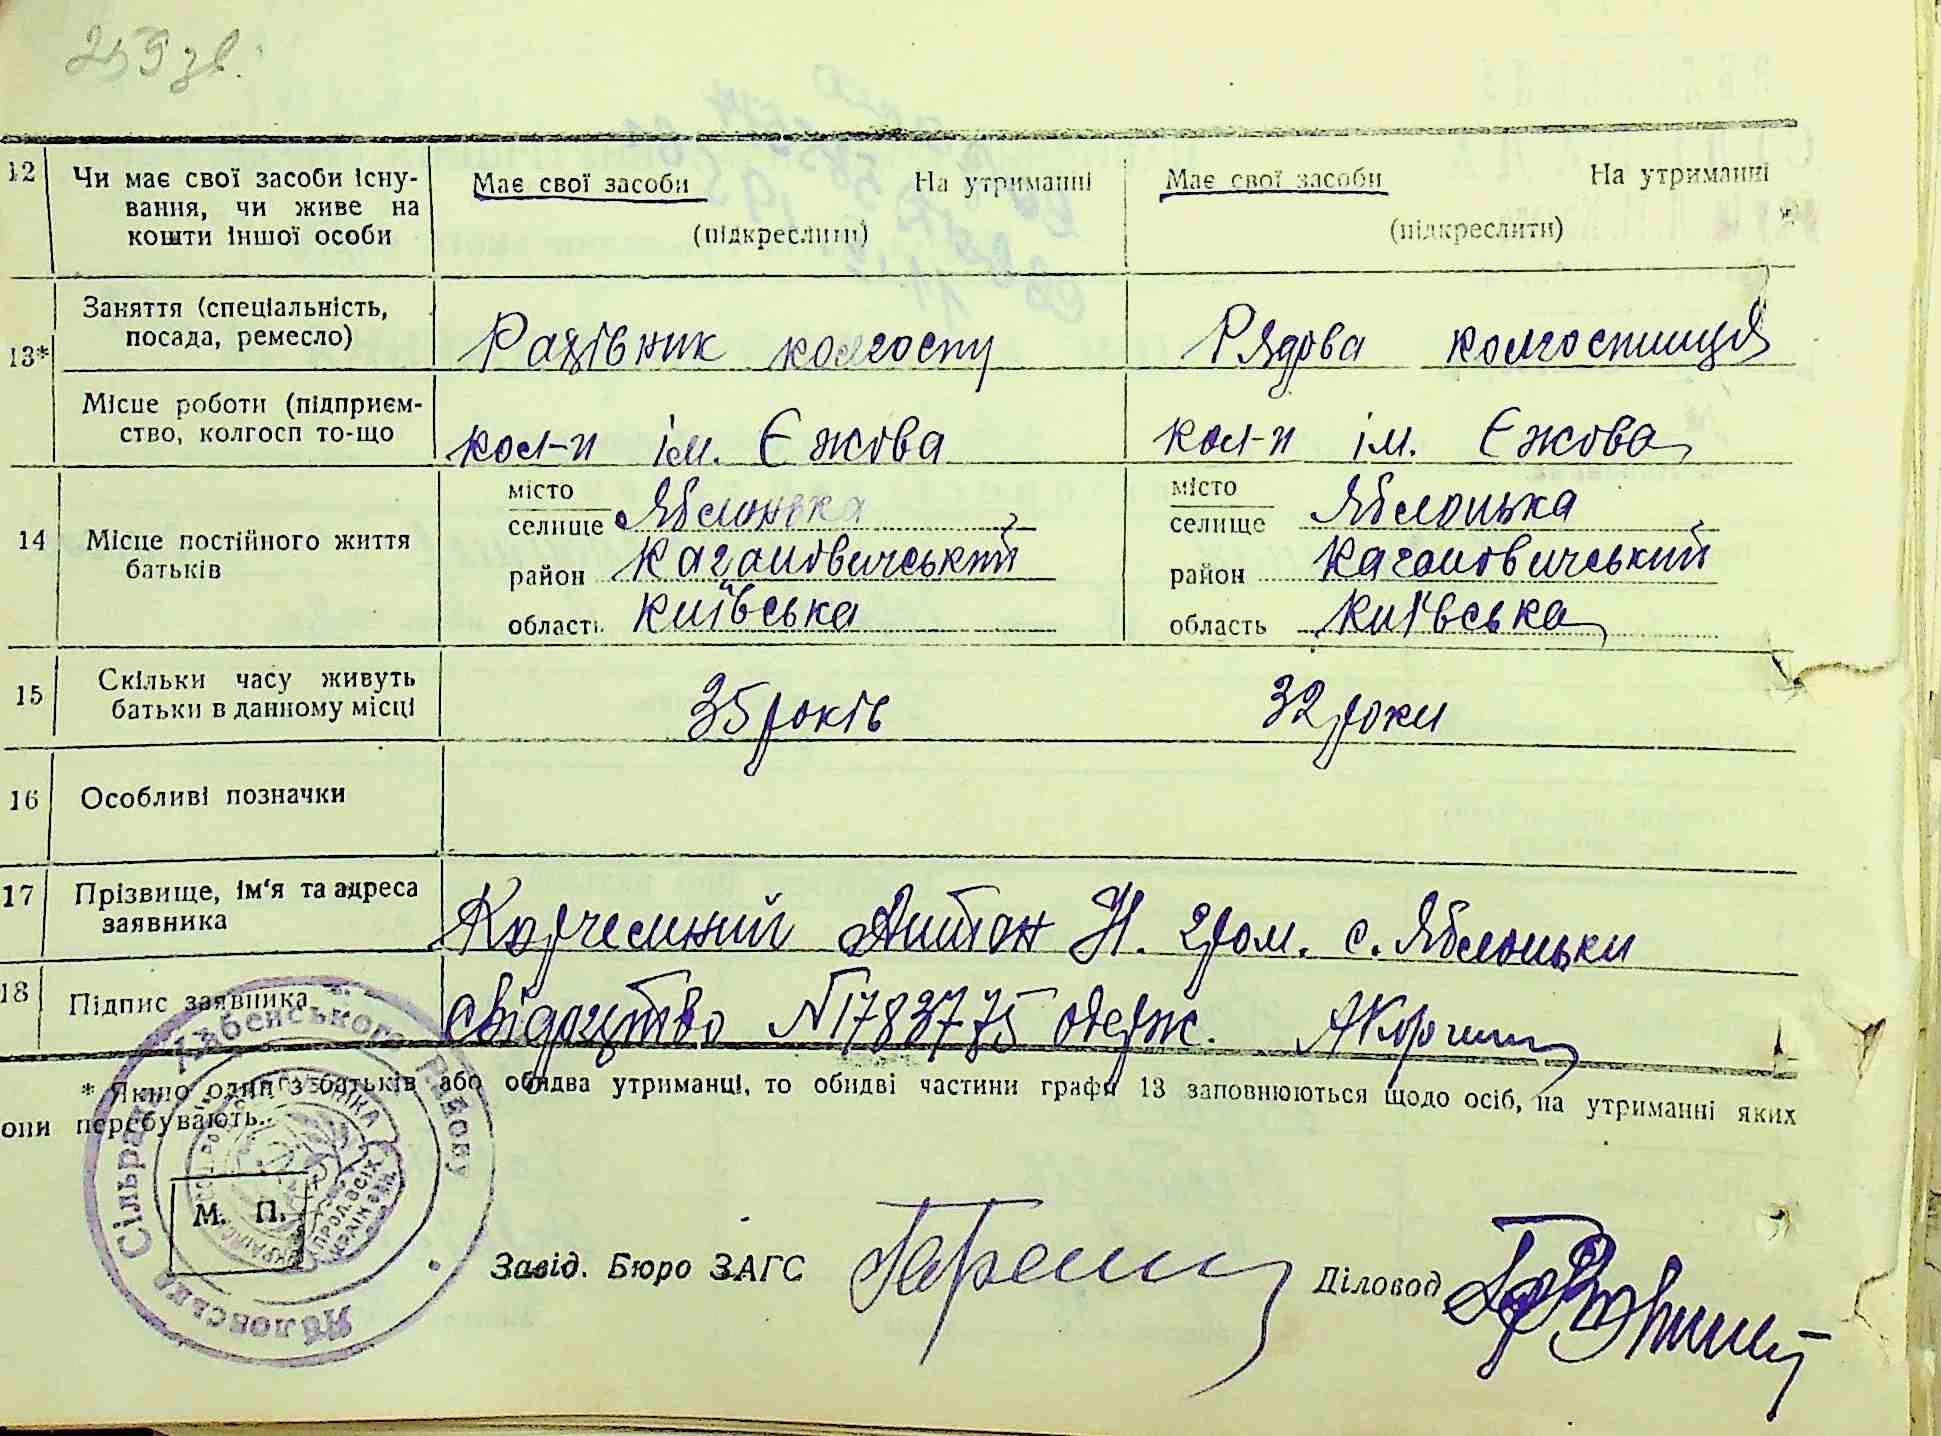 259 зв.
12 Чи має свої засоби існу- Має свої засоби На утриманні Має свої засоби На утриманні
вання, чи живе на
кошти іншої особи (підкреслити) (підкреслити)
13* Заняття (спеціальність,
посада, ремесло) Рахівник колгоспу Рядова колгоспниця
Місце роботи (підприєм-
ство, колгосп то-що кол-п ім. Єжова кол-п ім. Єжова
14 Місце постійного життя
батьків
місто місто
селище Яблонька селище Яблонька
район Кагановичський район Кагановичський
область Київська область Київська
15 Скільки часу живуть
батьки в данному місці 35 років 32 роки
16 Особливі позначки
17 Прізвище, ім'я та адреса
заявника Корчемний Антон Н. гром. с. Яблоньки
18 Підпис заявника свідоцтво N 1783775 одерж. АКорчемн
* Якщо один з батьків або обидва утриманці, то обидві частини графи 13 заповнюються щодо осіб, на утриманні яких
они перебувають.
Сільрада
Району
М. П.
Завід. Бюро ЗАГС Діловод